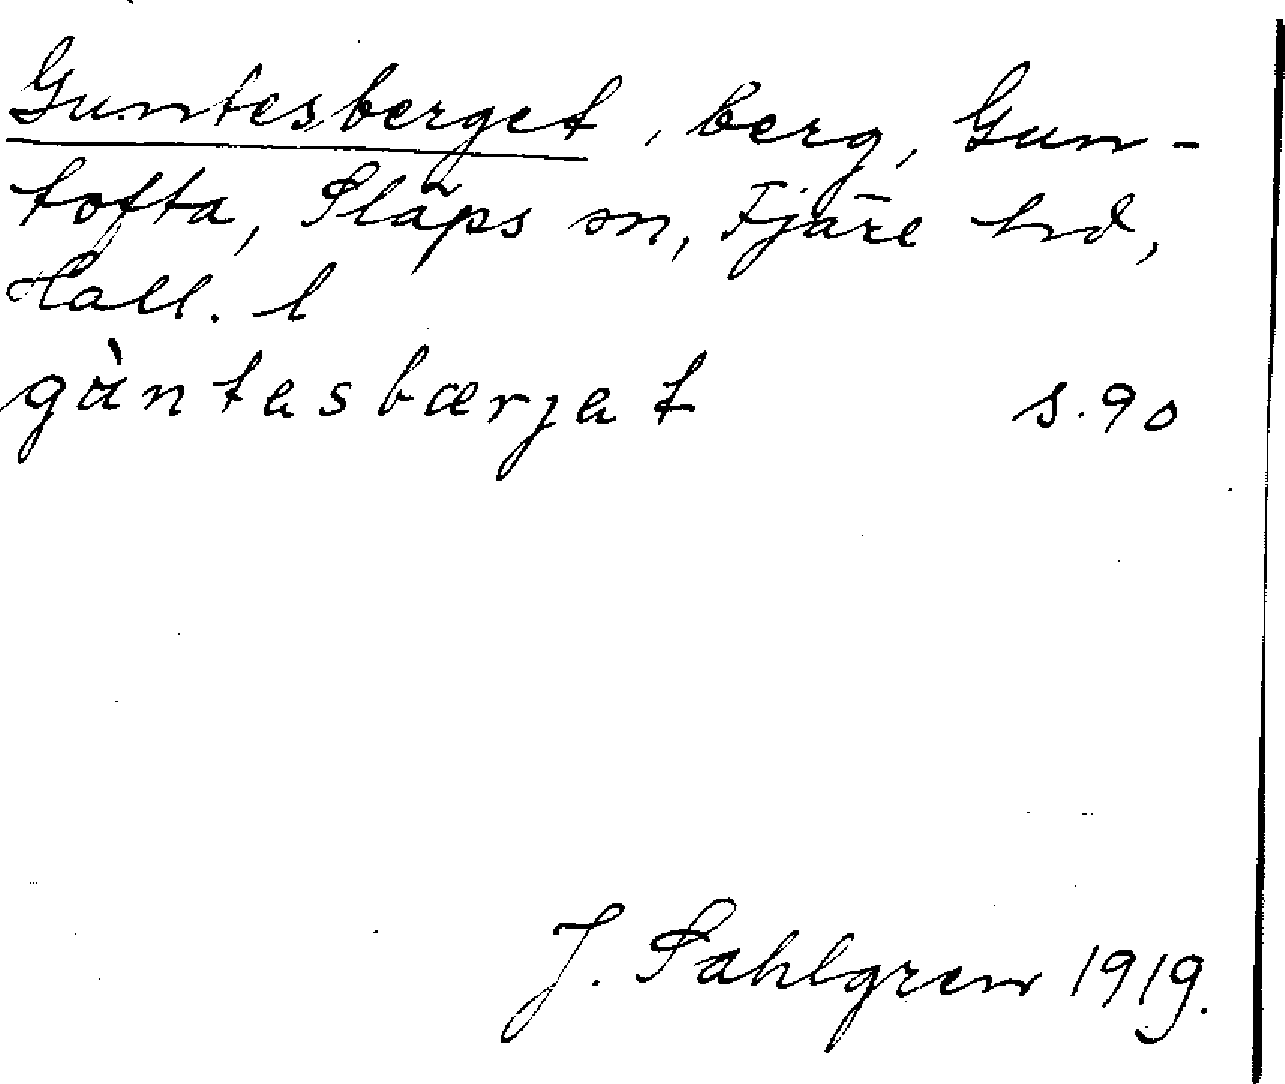 Guntesberget, berg, Gun-
tofta, Släps sn, Fjäre hd,
Hall. l
gùntasbærjat s. 90
J. Sahlgren 1919.